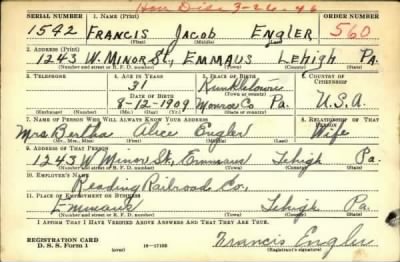 Hon Disc 3-26-46
SERIAL NUMBER 1. NAME (Print) ORDER NUMBER
1542 FRANCIS JACOB ENGLER 560
(First) (Middle) (Last)
2. ADDRESS (Print)
1243 W. MINOR St., EMMAUS LEHIGH PA.
(Number and street or R. F. D. number) (Town) (County) (State)
3. TELEPHONE 4. AGE IN YEARS 5. PLACE OF BIRTH 6. COUNTRY OF CITIZENSHIP
31 Kunkletown
DATE OF BIRTH (Town or county)
8-12-1909 Monroe Co Pa. U.S.A.
(Exchange) (Number) (Mo.) (Day) (Yr.) (State or country)
7. NAME OF PERSON WHO WILL ALWAYS KNOW YOUR ADDRESS 8. RELATIONSHIP OF THAT PERSON
Mrs Bertha Alice Engler Wife
(Mr., Mrs., Miss) (First) (Middle) (Last)
9. ADDRESS OF THAT PERSON
1243 W Minor St, Emmaus Lehigh Pa.
(Number and street or R. F. D. number) (Town) (County) (State)
10. EMPLOYER'S NAME
Reading Railroad Co.,
11. PLACE OF EMPLOYMENT OR BUSINESS
Emmaus Lehigh Pa.
(Number and street or R. F. D. number) (Town) (County) (State)
I AFFIRM THAT I HAVE VERIFIED ABOVE ANSWERS AND THAT THEY ARE TRUE.
REGISTRATION CARD
D. S. S. Form 1 (over) 16—17105 Francis Engler
(Registrant's signature)